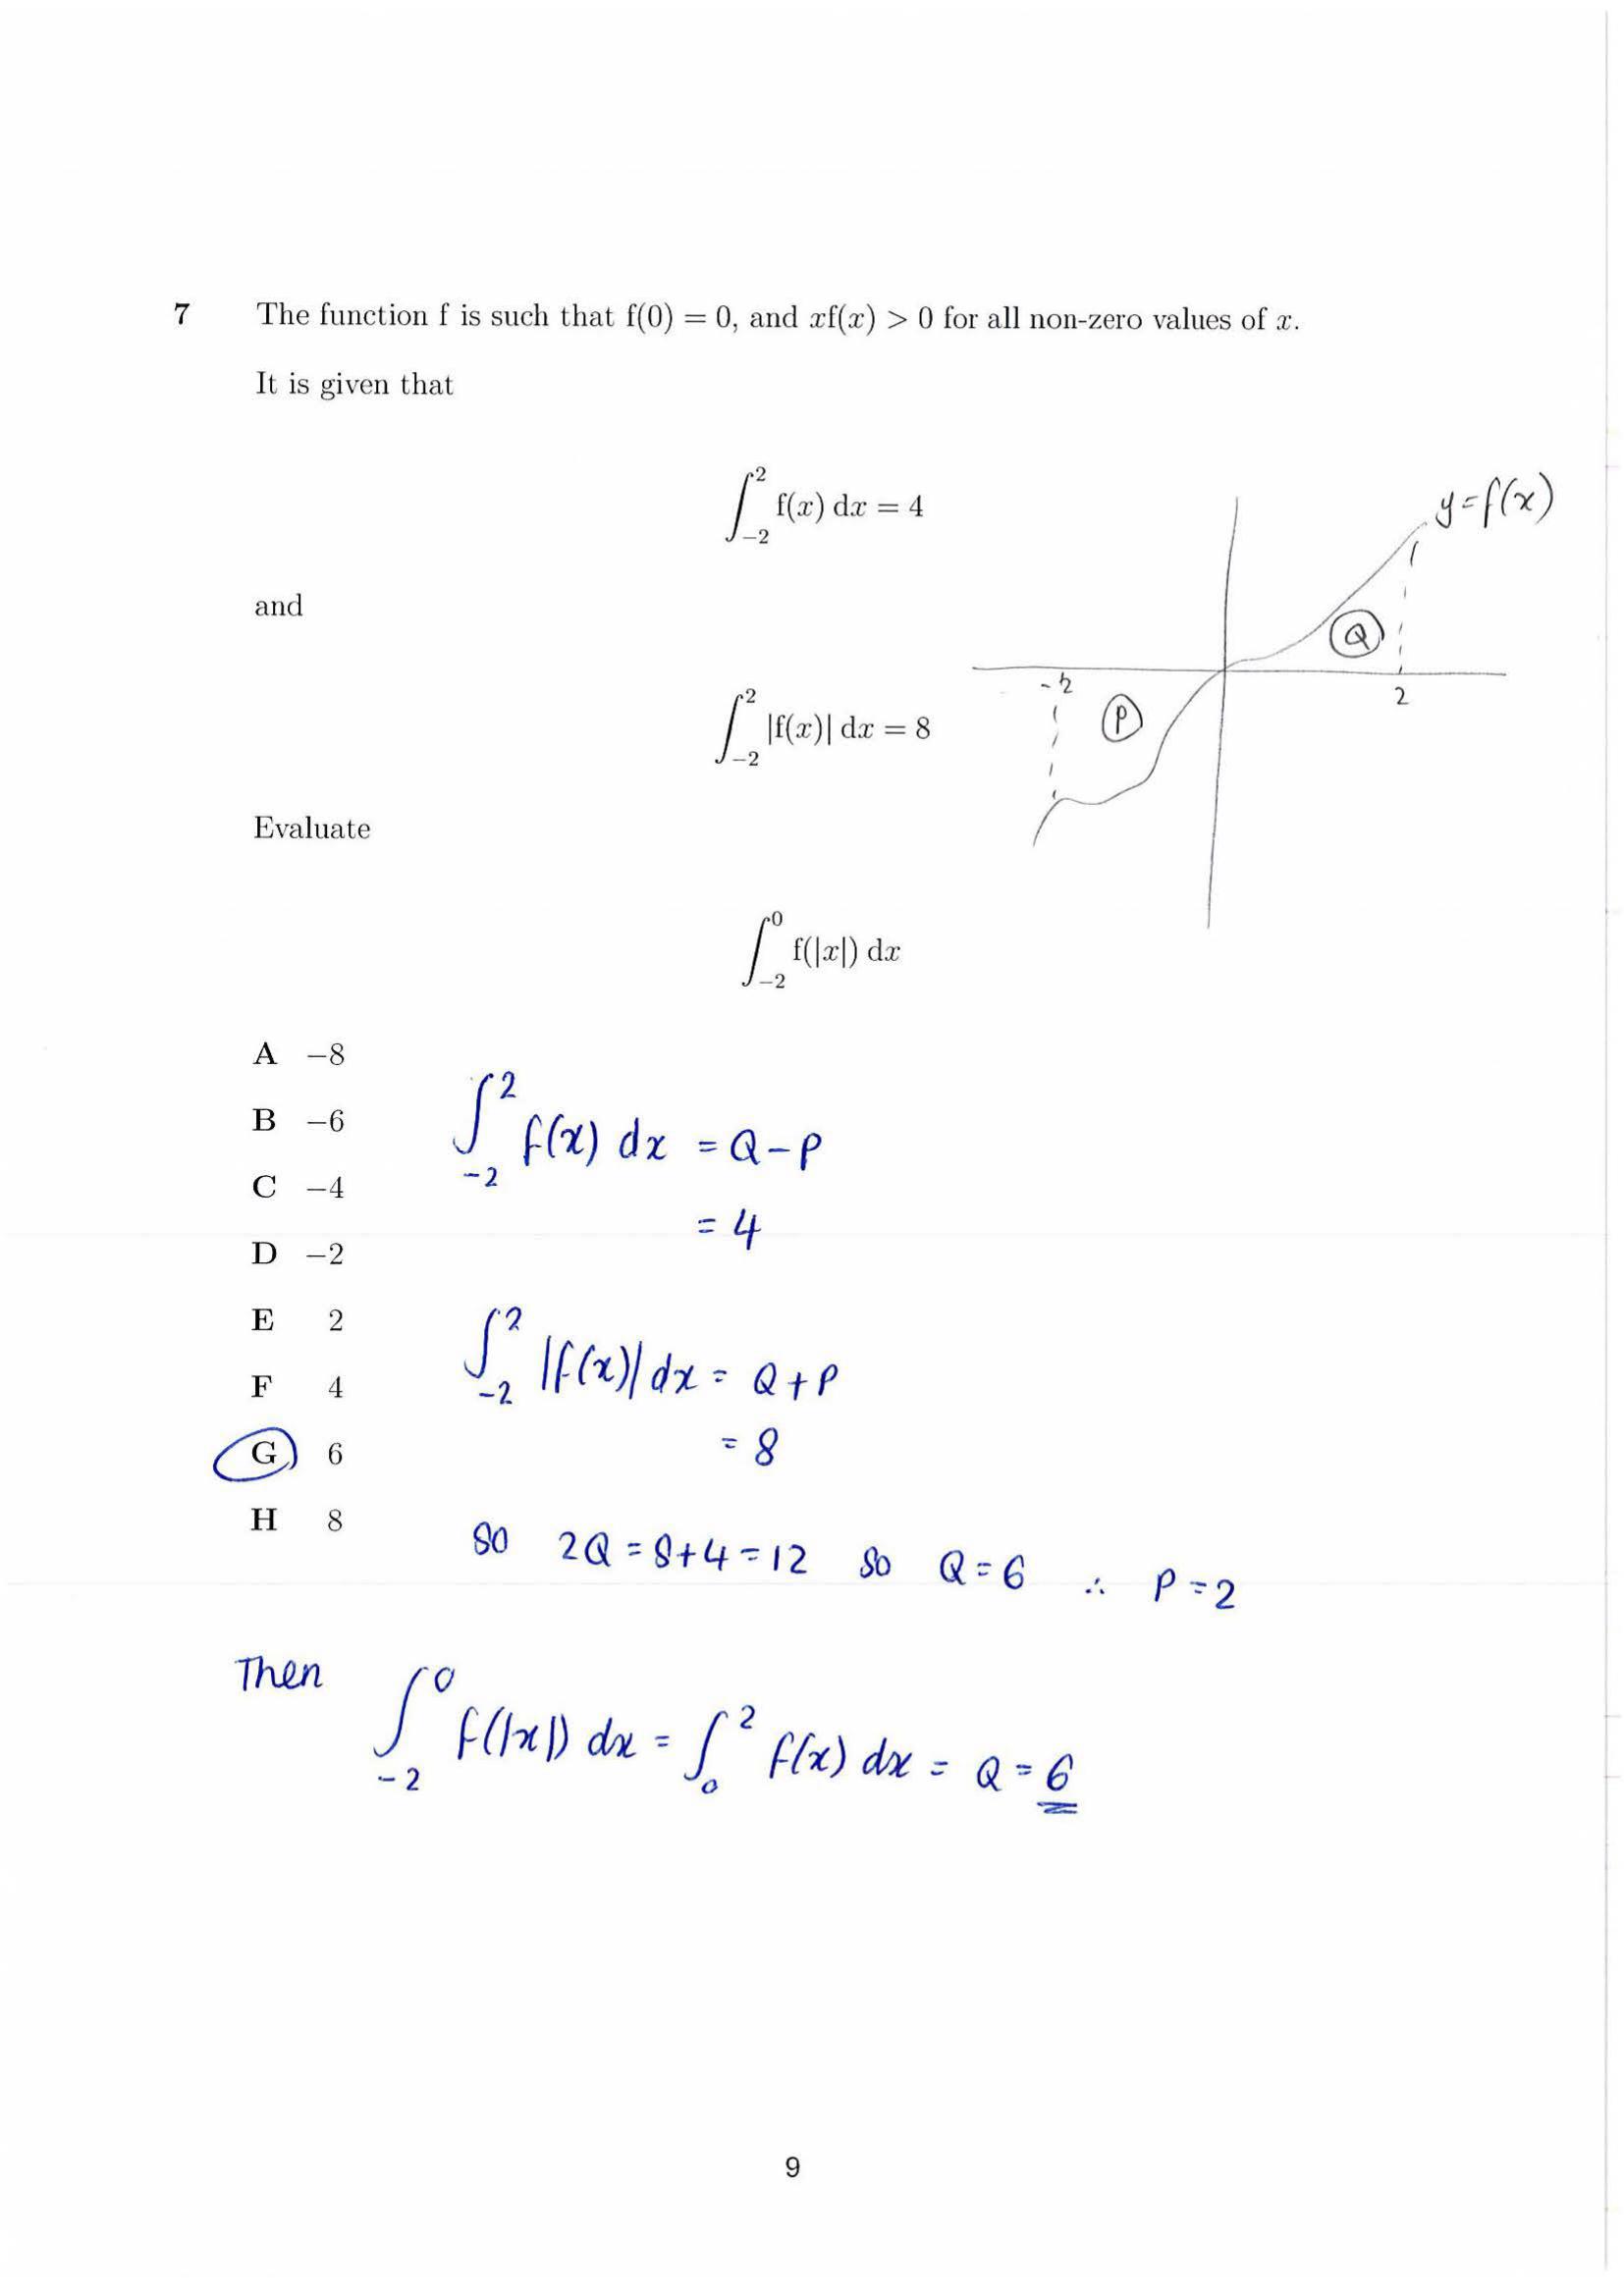 7 The function f is such that f(0) = 0, and xf(x) > 0 for all non-zero values of x.
It is given that
∫_{-2}^{2} f(x) dx = 4
y=f(x)
and
Q
-2
2
P
∫_{-2}^{2} |f(x)| dx = 8
Evaluate
∫_{-2}^{0} f(|x|) dx
A −8
B −6
C −4
D −2
E 2
F 4
G 6
H 8
∫_{-2}^{2} f(x) dx = Q-P
= 4
∫_{-2}^{2} |f(x)| dx = Q+P
= 8
so 2Q = 8+4 = 12 so Q = 6 ∴ P = 2
Then ∫_{-2}^{0} f(|x|) dx = ∫_{0}^{2} f(x) dx = Q = 6
9